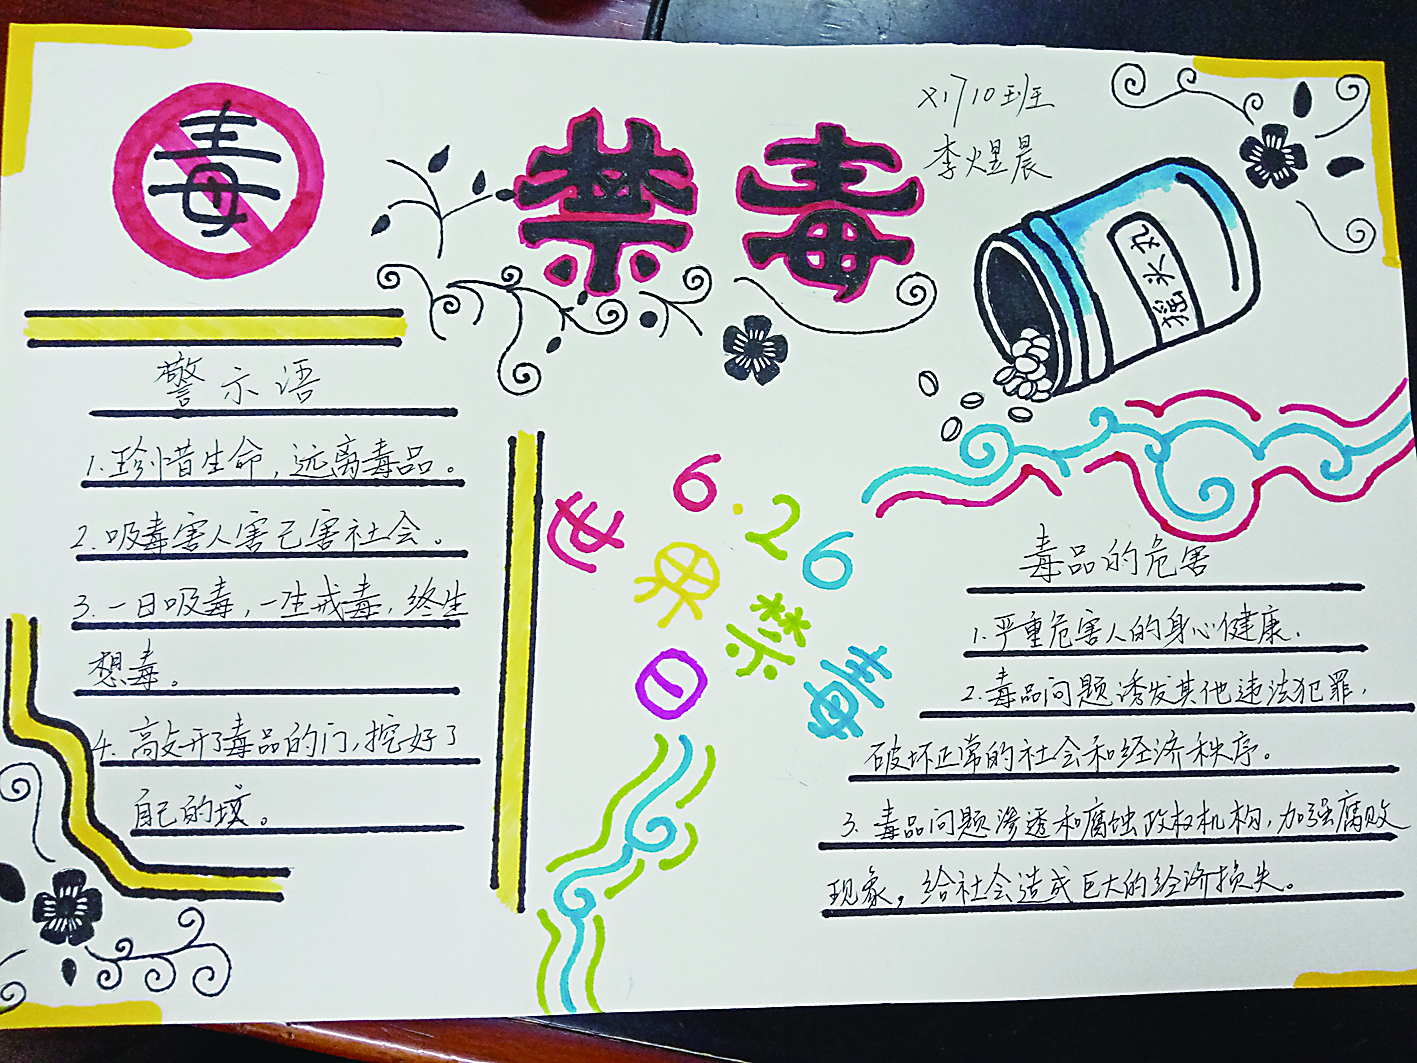 毒
禁毒
X1710班
李煜晨
摇头丸
警示语
1.珍惜生命，远离毒品。
2.吸毒害人害己害社会。
3.一日吸毒，一生戒毒，终生
想毒。
4.高敲开了毒品的门，挖好了
自己的坟。
6.26
世界禁毒
日
毒品的危害
1.严重危害人的身心健康.
2.毒品问题诱发其他违法犯罪，
破坏正常的社会和经济秩序。
3.毒品问题渗透和腐蚀政权机构，加强腐败
现象，给社会造成巨大的经济损失。